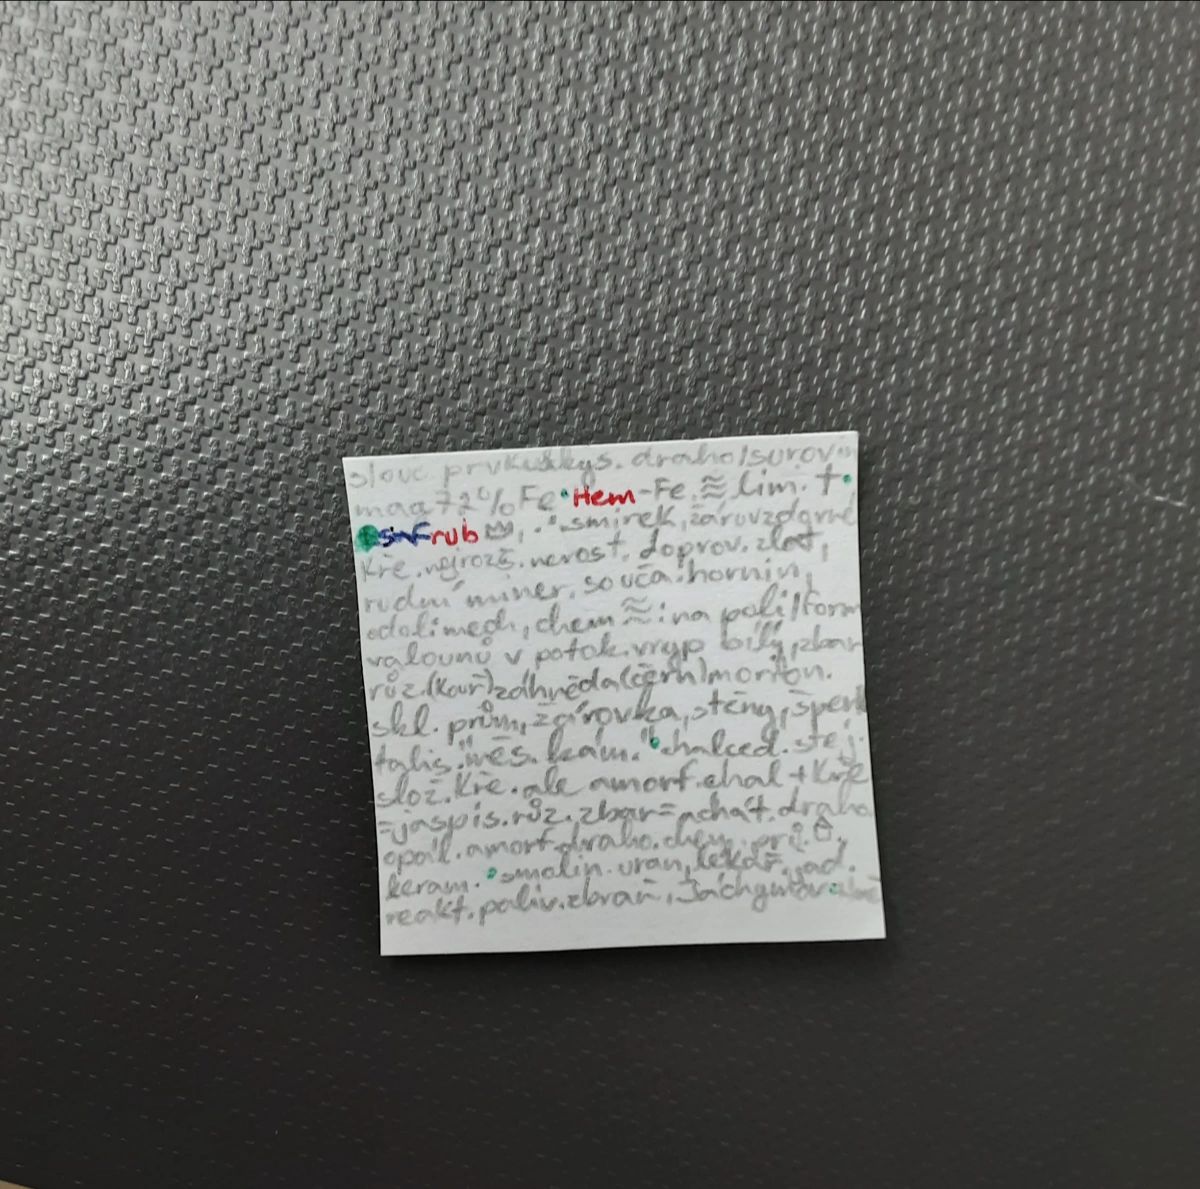 slouč prvku&kys. draho/surovin
mag 72% Fe • Hem-Fe ≈ lim. t •
safrub smirek, žáruvzdorné
Kře. nejrozš. nerost. doprov. zlat,
rudní miner. souča. hornin,
odoli mech, chem ≈ : na poli/form
valounů v potok. vryp bílý, zbar
růz. (kouř) záhněda (čern) morion.
skl. prům, žárovka, stěny, šperk
talis. "měs. kám." • chalced. stej.
slož. Kře. ale amorf. chal + Kře
=jaspis. růz. zbar = achát. draho
opál. amorf. draho. chem. prů.
keram. • smolin. uran, lékař. jad.
reakt. paliv. zbraň, Jáchymov